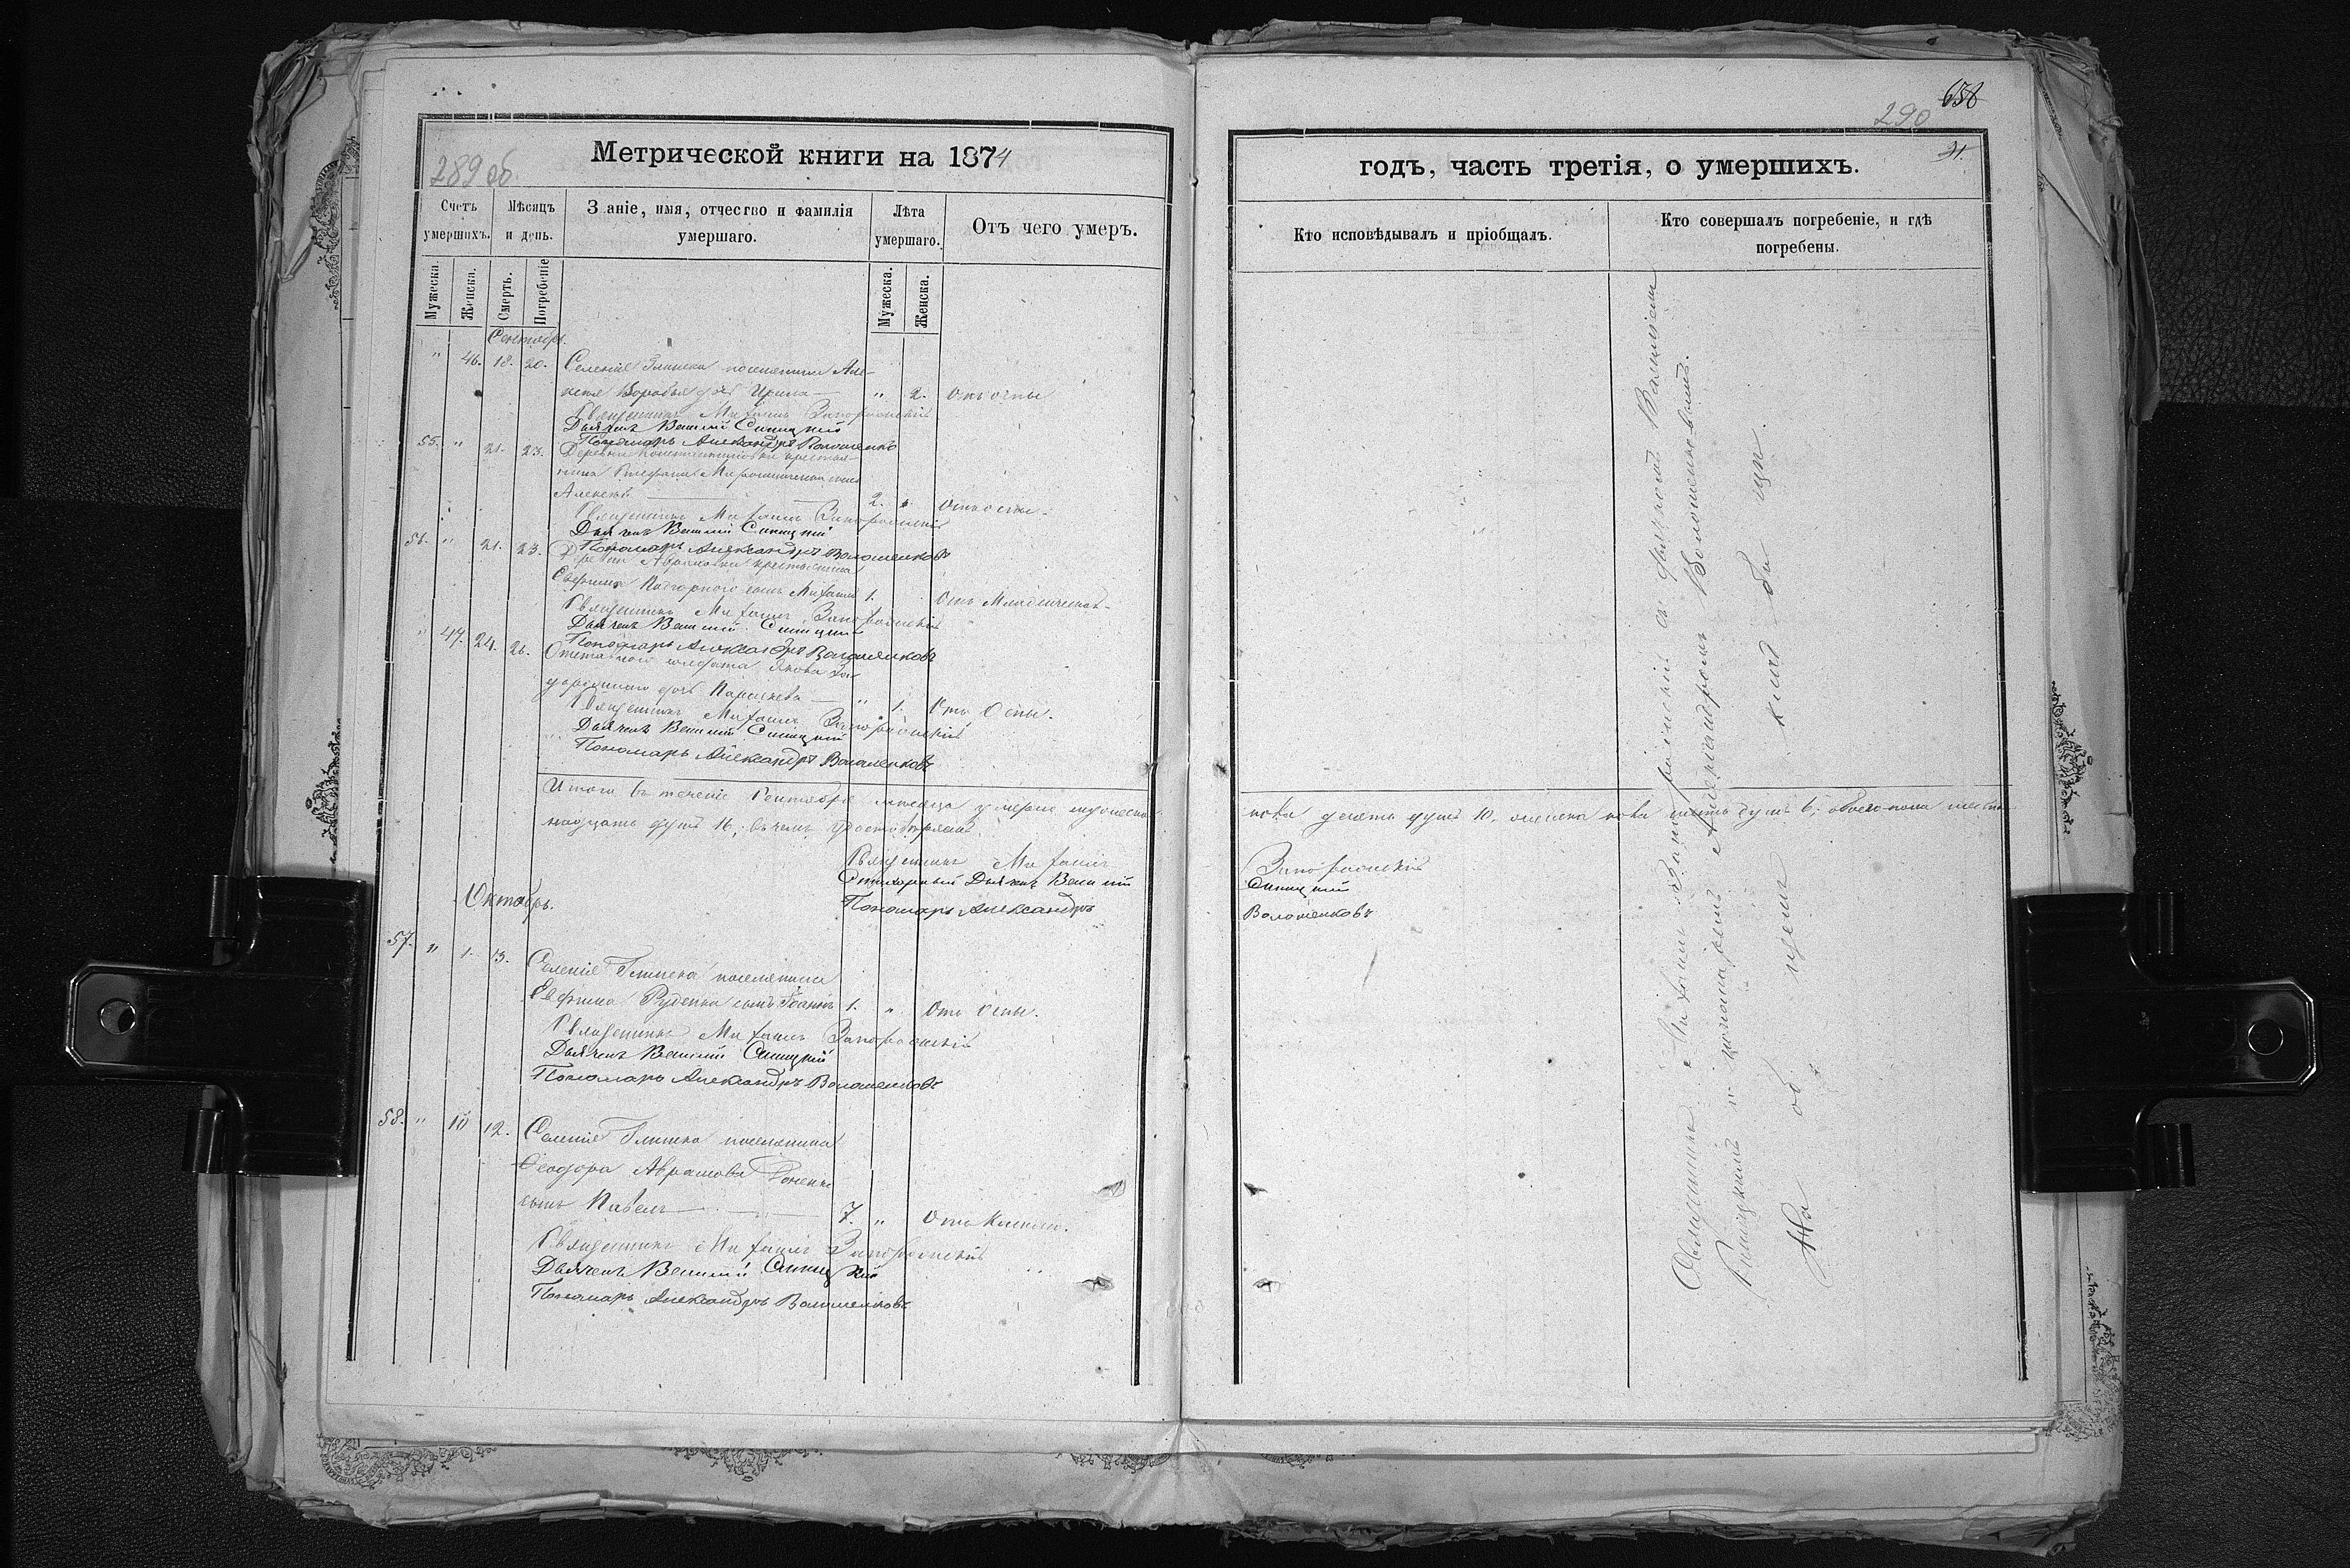 289 об
Метрической книги на 1874
Счетъ умершихъ.
Мѣсяцъ и день.
Званіе, имя, отчество и фамилія умершаго.
Лѣта умершаго.
Отъ чего умеръ.
Мужеска.
Женска.
Смерть.
Погребеніе
Мужеска.
Женска.
Сентябрь.
" 46. 18. 20. Селенія Глинска поселянина Але-
ксѣя дочь Ирина " 2. Отъ оспы
Священникъ Михаилъ
Дьячекъ Василій Синицкій
Пономарь Александръ Волошенковъ
55. " 21. 23. Деревни Константиновки крестья-
нина Стефана сынъ
Алексѣй 2. " Отъ оспы.
Священникъ Михаилъ
Дьячекъ Василій Синицкій
Пономарь Александръ Волошенковъ
56. " 21. 23. Деревни Абрамовки крестьянина
Подгорного сынъ Михаилъ 1. Отъ Младенческой
Священникъ Михаилъ
Дьячекъ Василій Синицкій
Пономарь Александръ Волошенковъ
" 47. 24. 26. Отставного солдата Якова
дочь Параскева " 1. Отъ Оспы.
Священникъ Михаилъ
Дьячекъ Василій Синицкій
Пономарь Александръ Волошенковъ
Итого въ теченіе Сентября мѣсяца умерло мужеска
надцать душъ 16, въ чемъ удостовѣряемъ
Священникъ Михаилъ
Стихарный Дьячекъ Василій
Пономарь Александръ
Октябрь.
57. " 1. 3. Селенія Глинска поселянина
Евфима Руденка сынъ Іоаннъ 1. " Отъ Оспы.
Священникъ Михаилъ
Дьячекъ Василій Синицкій
Пономарь Александръ Волошенковъ
58. " 10 12. Селенія Глинска поселянина
Ѳеодора Абрамова
сынъ Павелъ 7. " Отъ Кашлю.
Священникъ Михаилъ
Дьячекъ Василій Синицкій
Пономарь Александръ Волошенковъ
658
290
31.
годъ, часть третія, о умершихъ.
Кто исповѣдывалъ и пріобщалъ.
Кто совершалъ погребеніе, и гдѣ погребены.
пола десять душъ 10, женска пола шесть душъ 6, обоего пола шест-
Синицкій
Волошенковъ
Священникъ Михаилъ съ дьячкомъ Василіемъ
Синицкимъ и пономаремъ Александромъ Волошенковымъ.
На общемъ кладбищѣ.